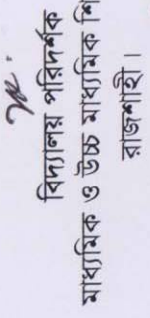 বিদ্যালয় পরিদর্শক
মাধ্যমিক ও উচ্চ মাধ্যমিক শি
রাজশাহী।